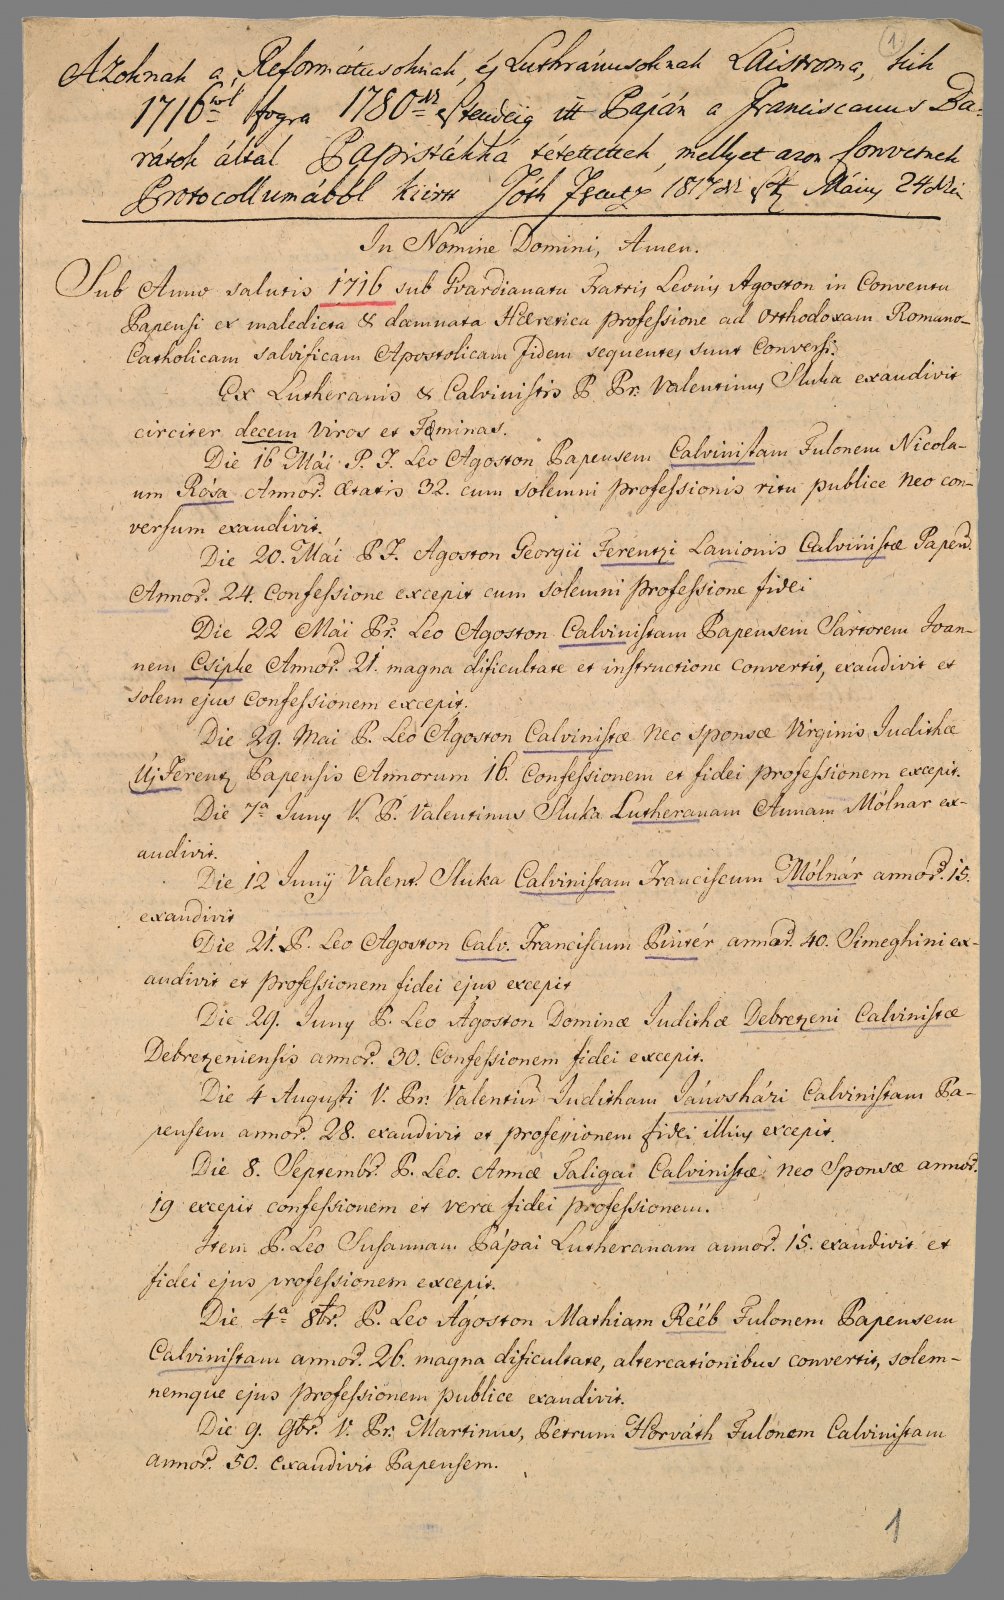 1.
Azoknak a Reformátusoknak, és Lutheránusoknak Laistroma, kik
1716ból fogva 1780dik Esztendeig itt Pápán a Franciscanus Ba-
rátok által Papistákká tétettettek, mellyet azon Conventnek
Protocollumából kiírt Tóth Ferentz 1817dik Eszt Május 24dikén
In Nomine Domini, Amen.
Sub Anno salutis 1716 sub Gvardianatu Fratris Leonis Ágoston in Conventu
Papensi ex maledicta & damnata Hæretica professione ad Orthodoxam Romano-
Catholicam salvificam Apostolicam fidem sequentes sunt Conversi.
Ex Lutheranis & Calvinistis P. Pr. Valentinus Sluka exaudivit
circiter decem Viros et Fœminas.
Die 16 Mái P. F. Leo Ágoston Papensem Calvinistam Fulonem Nicola-
um Rósa Annor. Ætatis 32. cum solemni professionis ritu publice Neo con-
versum exaudivit.
Die 20. Mái P F. Ágoston Georgii Ferentzi Lanionis Calvinistæ Papens.
Annor. 24. Confessione excepit cum solemni professione fidei
Die 22 Mái Pr. Leo Ágoston Calvinistam Papensem Sartorem Joan-
nem Csipke Annor. 21. magna dificultate et instructione convertit, exaudivit et
solem ejus Confessionem excepit.
Die 29. Mai P. Leo Ágoston Calvinistæ Neo sponsæ Virginis Judithæ
Új Ferentz Papensis Annorum 16. Confessionem et fidei professionem excepit.
Die 7a Juny V. P. Valentinus Sluka Lutheranam Annam Mólnar ex-
audivit.
Die 12 Junÿ Valent. Sluka Calvinistam Franciscum Mólnár annor. 15.
exaudivit
Die 21. P. Leo Agoston Calv. Franciscum Pintér annor. 40. Simeghini ex-
audivit et professionem fidei ejus excepit
Die 29. Juny P. Leo Ágoston Dominæ Judithæ Debretzeni Calvinistæ
Debretzeniensis annor. 30. Confessionem fidei excepit.
Die 4 Augusti V. Pr. Valentin Juditham Jánosházi Calvinistam Pa-
pensem annor. 28. exaudivit et professionem fidei illius excepit.
Die 8. Septembr. P. Leo. Annæ Taligai Calvinistæ Neo Sponsæ annor.
19 excepit confessionem et veræ fidei professionem.
Item P. Leo Susannam Pápai Lutheranam annor. 15. exaudivit et
fidei ejus professionem excepit.
Die 4a 8br. P. Leo Ágoston Mathiam Rééb Fulonem Papensem
Calvinistam annor. 26. magna dificultate, altercationibus convertit, solem-
nemque ejus professionem publice exaudivit.
Die 9. 9br. V. Pr. Martinus, Petrum Horváth Fulonem Calvinistam
annor. 50. exaudivit Papensem.
1